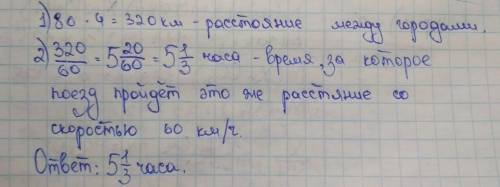 1) 80 · 4 = 320 км - расстояние между городами.
2) 320/60 = 5 20/60 = 5 1/3 часа - время, за которое
поезд пройдёт это же расстояние со
скоростью 60 км/ч.
Ответ: 5 1/3 часа.